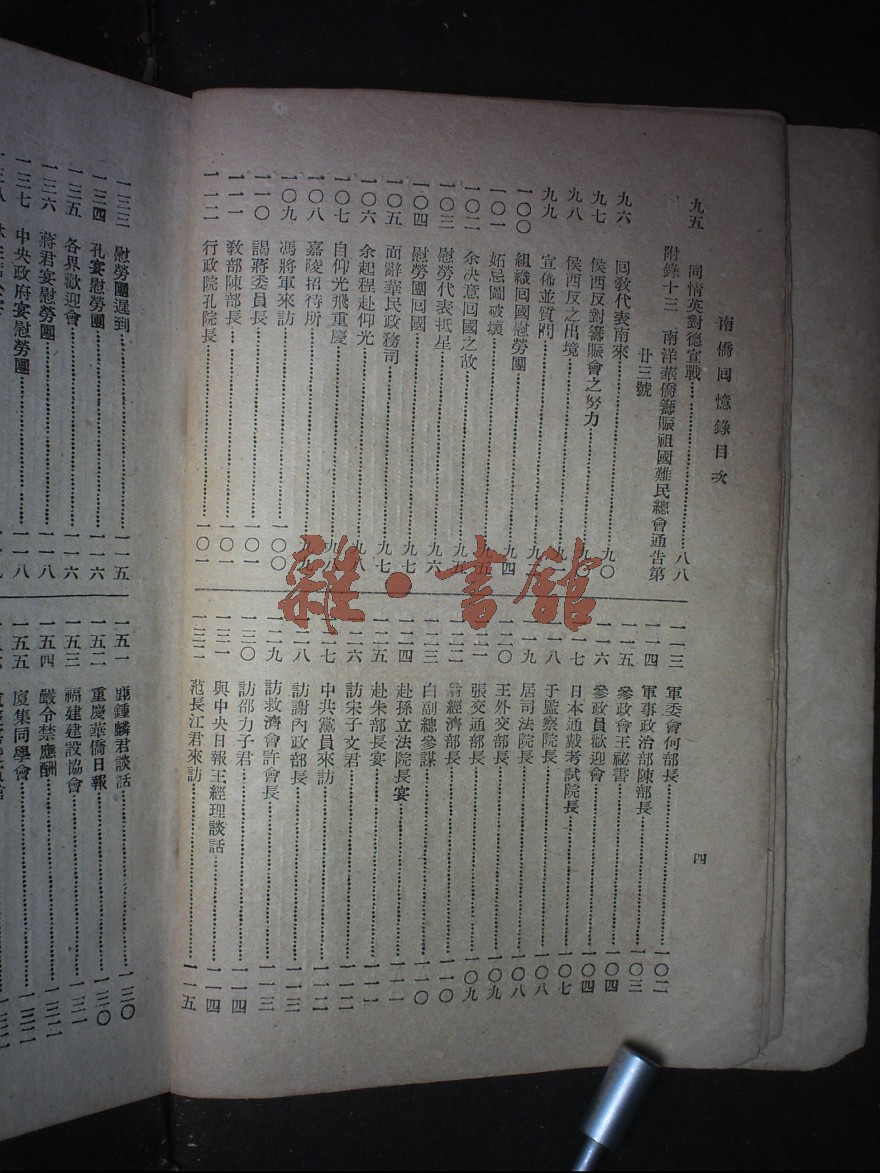 南僑回憶錄目次
九五 同情英對德宣戰 八八
附錄十三 南洋華僑籌賑祖國難民總會通告第
廿三號
九六 回敎代表南來 九〇
九七 侯西反對籌賑會之努力
九八 侯西反之出境
九九 宣佈並質問
一〇〇 組織回國慰勞團 九四
一〇一 妬忌圖破壞
一〇二 余决意回國之故
一〇三 慰勞代表抵星 九六
一〇四 慰勞團回國 九七
一〇五 面辭華民政務司 九七
一〇六 余起程赴仰光 九八
一〇七 自仰光飛重慶
一〇八 嘉陵招待所
一〇九 馮將軍來訪 一〇〇
一一〇 謁蔣委員長 一〇一
一一一 敎部陳部長 一〇一
一一二 行政院孔院長 一〇一
一一三 軍委會何部長 一〇二
一一四 軍事政治部陳部長 一〇三
一一五 參政會王祕書 一〇四
一一六 參政員歡迎會 一〇四
一一七 日本通戴考試院長 一〇七
一一八 于監察院長 一〇八
一一九 居司法院長 一〇八
一二〇 王外交部長 一〇九
一二一 張交通部長 一〇九
一二二 翁經濟部長 一一〇
一二三 白副總參謀 一一〇
一二四 赴孫立法院長宴 一一一
一二五 赴朱部長宴 一一一
一二六 訪宋子文君 一一二
一二七 中共黨員來訪 一一二
一二八 訪謝內政部長 一一三
一二九 訪救濟會許會長 一一三
一三〇 訪邵力子君 一一四
一三一 與中央日報王經理談話 一一四
一三二 范長江君來訪 一一五
四
一三三 慰勞團遲到 一一五
一三四 孔宴慰勞團 一一六
一三五 各界歡迎會 一一六
一三六 蔣君宴慰勞團 一一八
一三七 中央政府宴慰勞團 一一八
一三八
一五一 鹿鍾麟君談話 一三〇
一五二 重慶華僑日報 一三〇
一五三 福建建設協會 一三一
一五四 嚴令禁應酬 一三二
一五五 廈集同學會
雜·書館